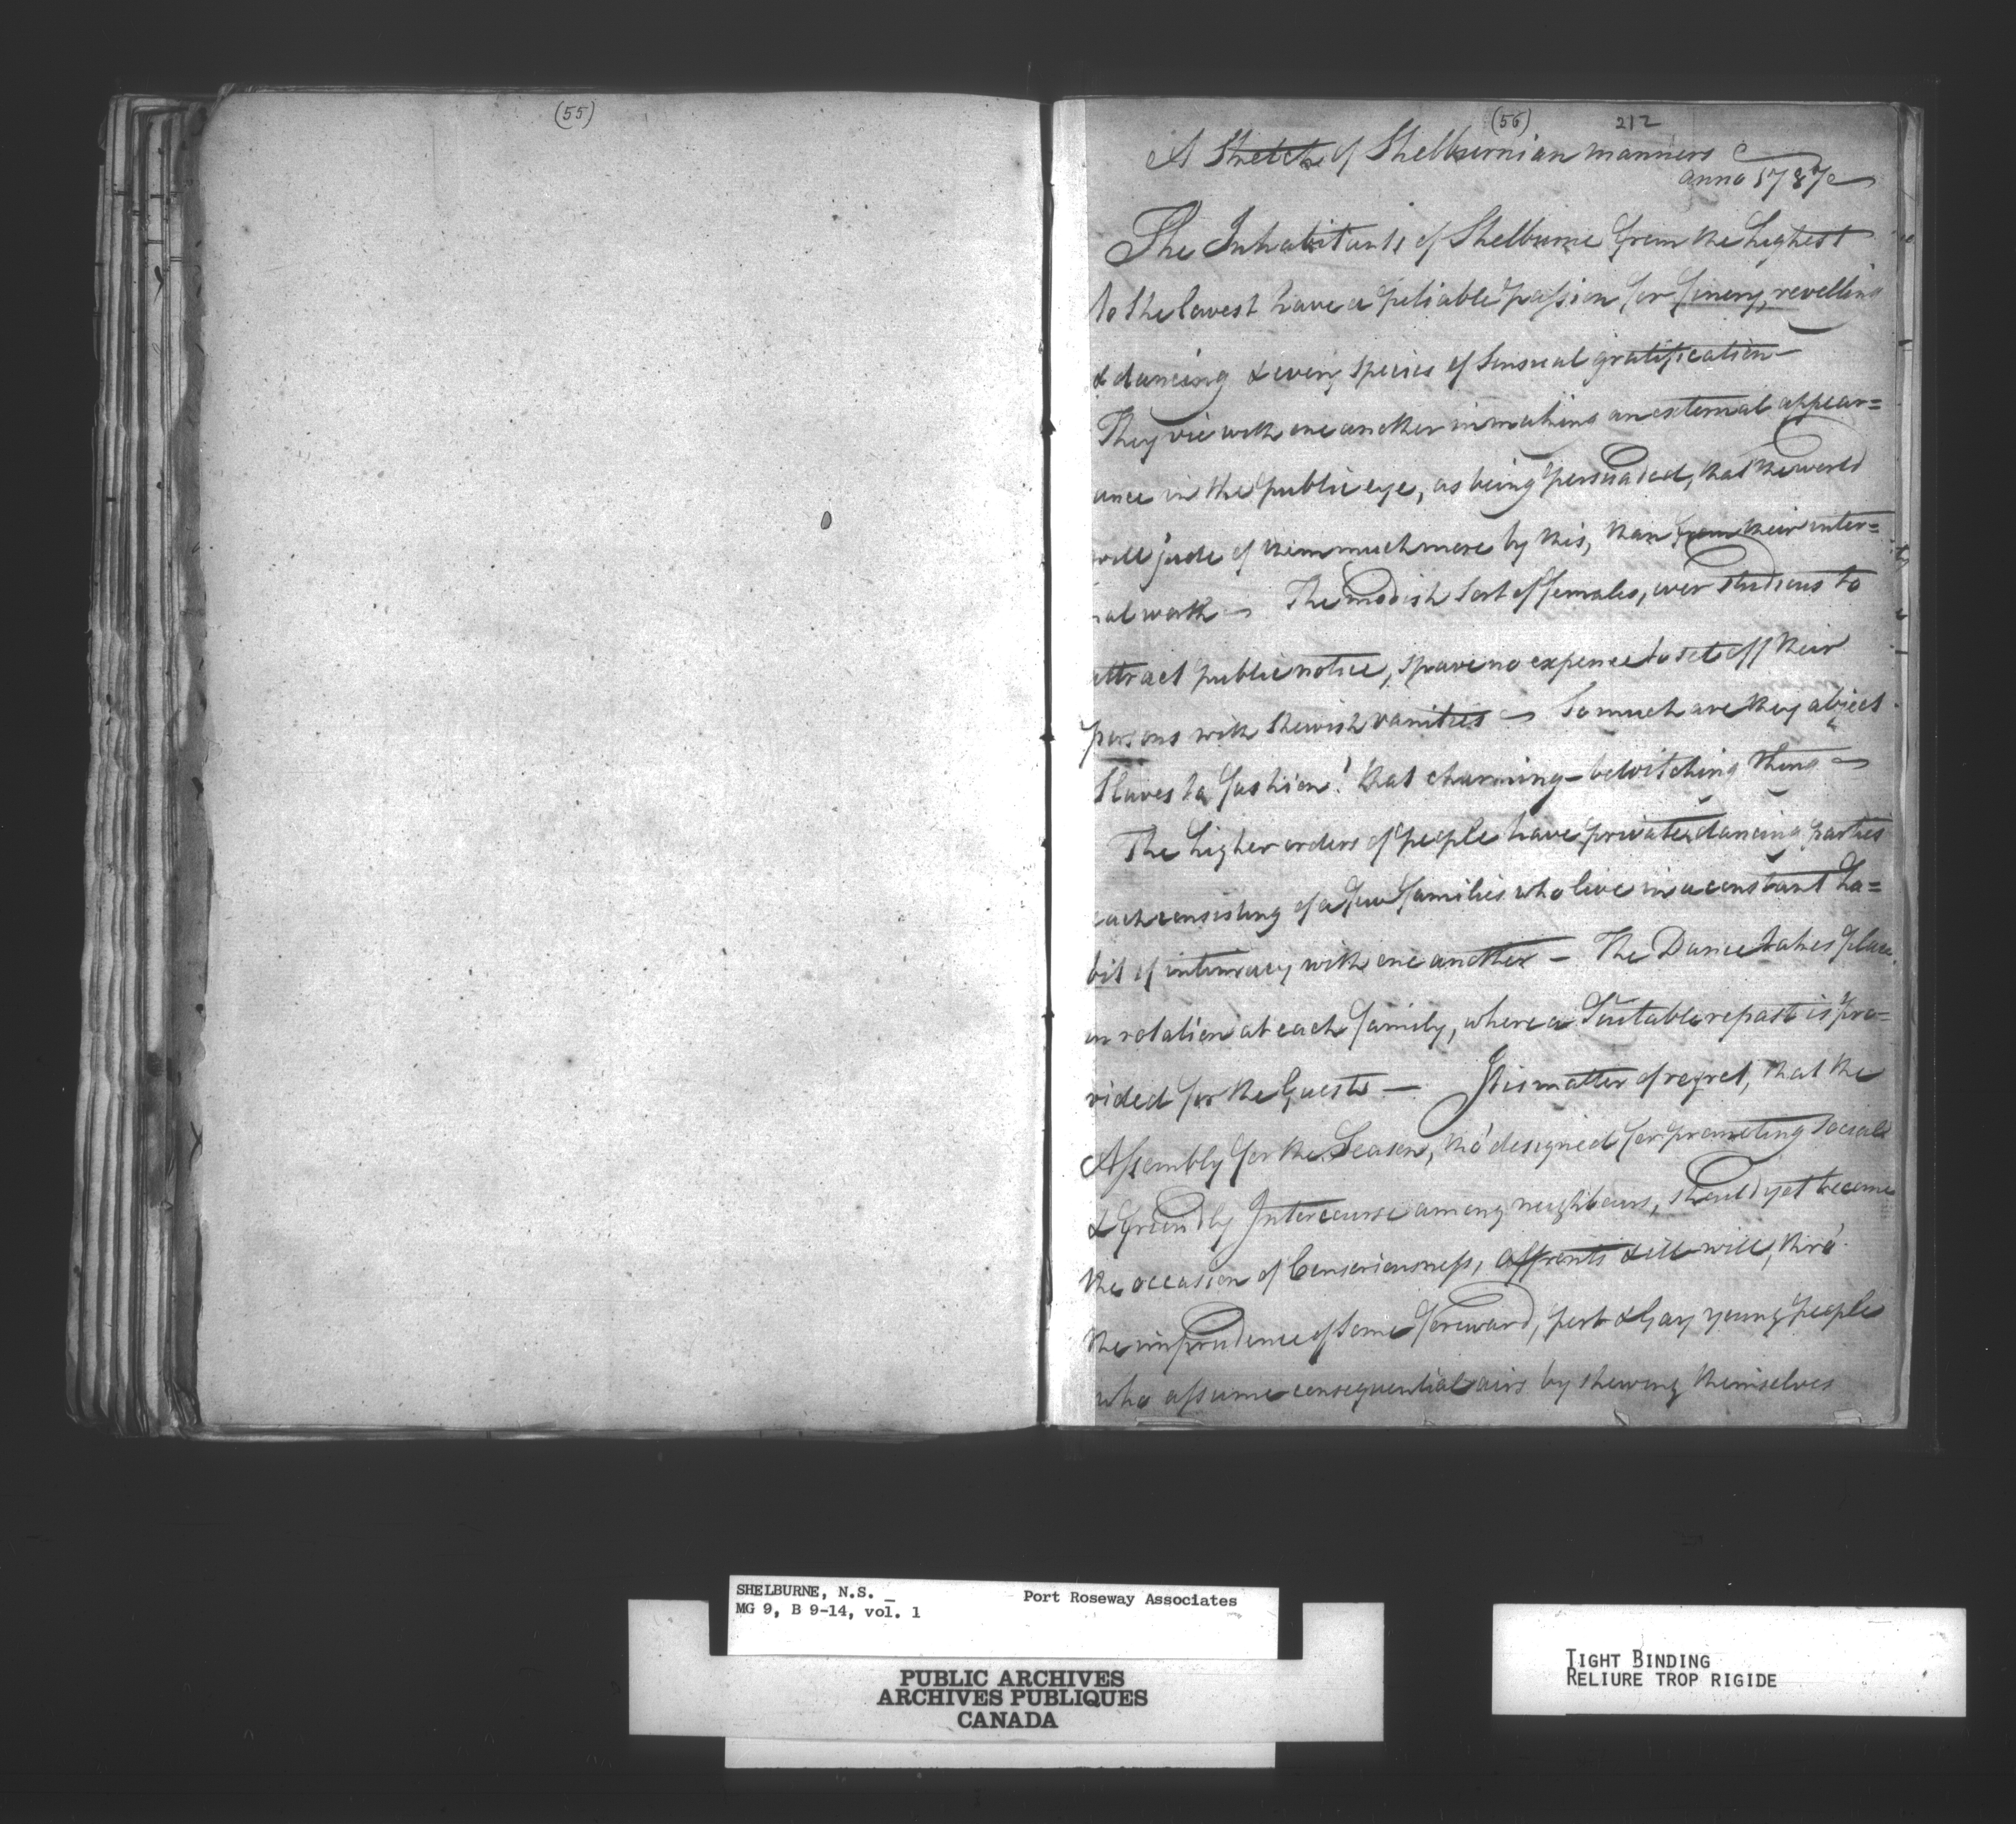 (55)
(56) 212
A Sketch of Shelburnian manners
anno 1787
The Inhabitants of Shelburne from the highest
to the lowest have a pitiable passion for finery, revelling
& dancing & every species of sensual gratification —
They vie with one another in making an external appear=
ance in the public eye, as being persuaded, that the world
will jude of them much more by this, than from their inter=
nal worth — The modish sort of females, ever studious to
attract public notice, spare no expence to set off their
persons with shewish vanities — So much are they abject
Slaves to fashion! that charming - bewitching thing —
The higher orders of people have private dancing parties
each consisting of a few families who live in a constant ha=
bit of intimacy with one another — The Dance takes place
in rotation at each family, where a Suitable repast is pro=
vided for the Guests — It is matter of regret, that the
Assembly for the Season, tho' designed for promoting social
& friendly Intercourse among neighbours, should yet become
the occasion of Censoriousness, affronts & ill will, thro'
the imprudence of some foreward, pert & gay young people
who assume consequential airs by shewing themselves
SHELBURNE, N.S. _ Port Roseway Associates
MG 9, B 9-14, vol. 1
PUBLIC ARCHIVES
ARCHIVES PUBLIQUES
CANADA
TIGHT BINDING
RELIURE TROP RIGIDE